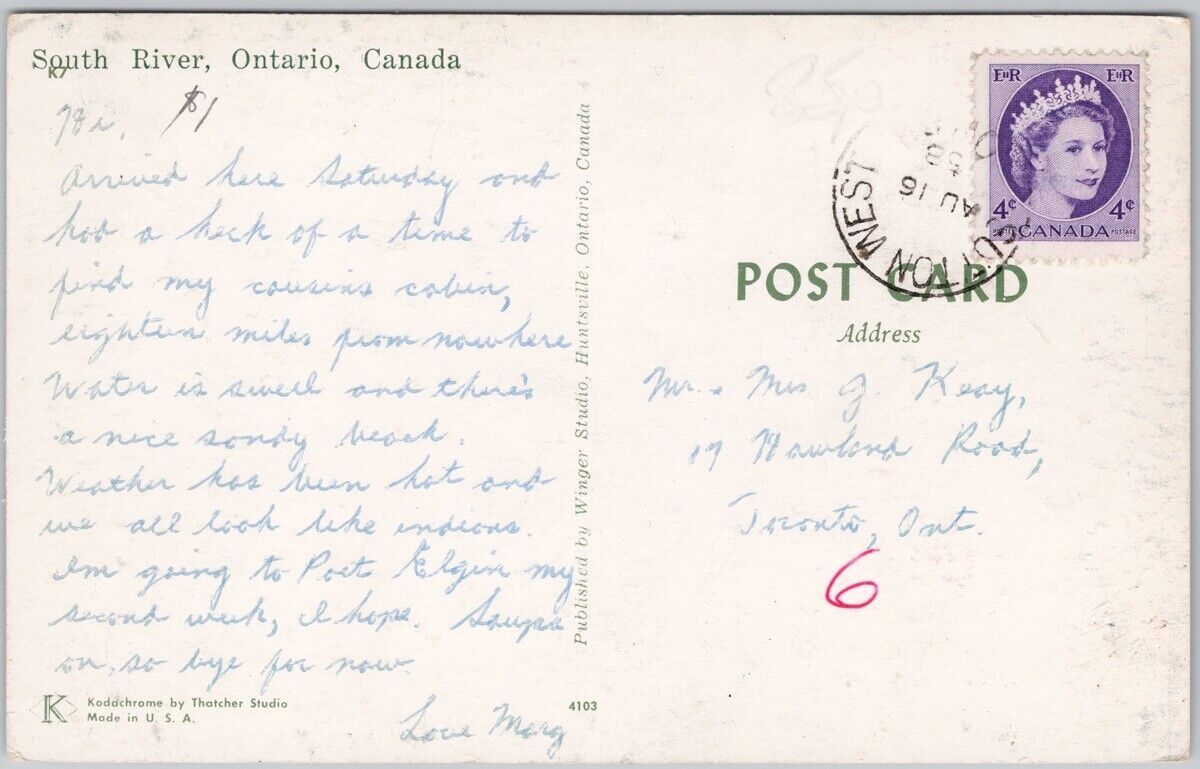 South River, Ontario, Canada
K7
$1
Hi,
Arrived here Saturday and
had a heck of a time to
find my cousins cabin,
eighteen miles from nowhere
Water is swell and there's
a nice sandy beach.
Weather has been hot and
we all look like indians.
I'm going to Port Elgin my
second week, I hope. Soup's
on, so bye for now.
Love Marg
K
Kodachrome by Thatcher Studio
Made in U. S. A.
4103
Published by Winger Studio, Huntsville, Ontario, Canada
EIIR EIIR
4¢ 4¢
CANADA
POSTES POSTAGE
WEST
AU 16
58
POST CARD
Address
Mr. & Mrs J. Keay,
19 Road,
Toronto, Ont.
6